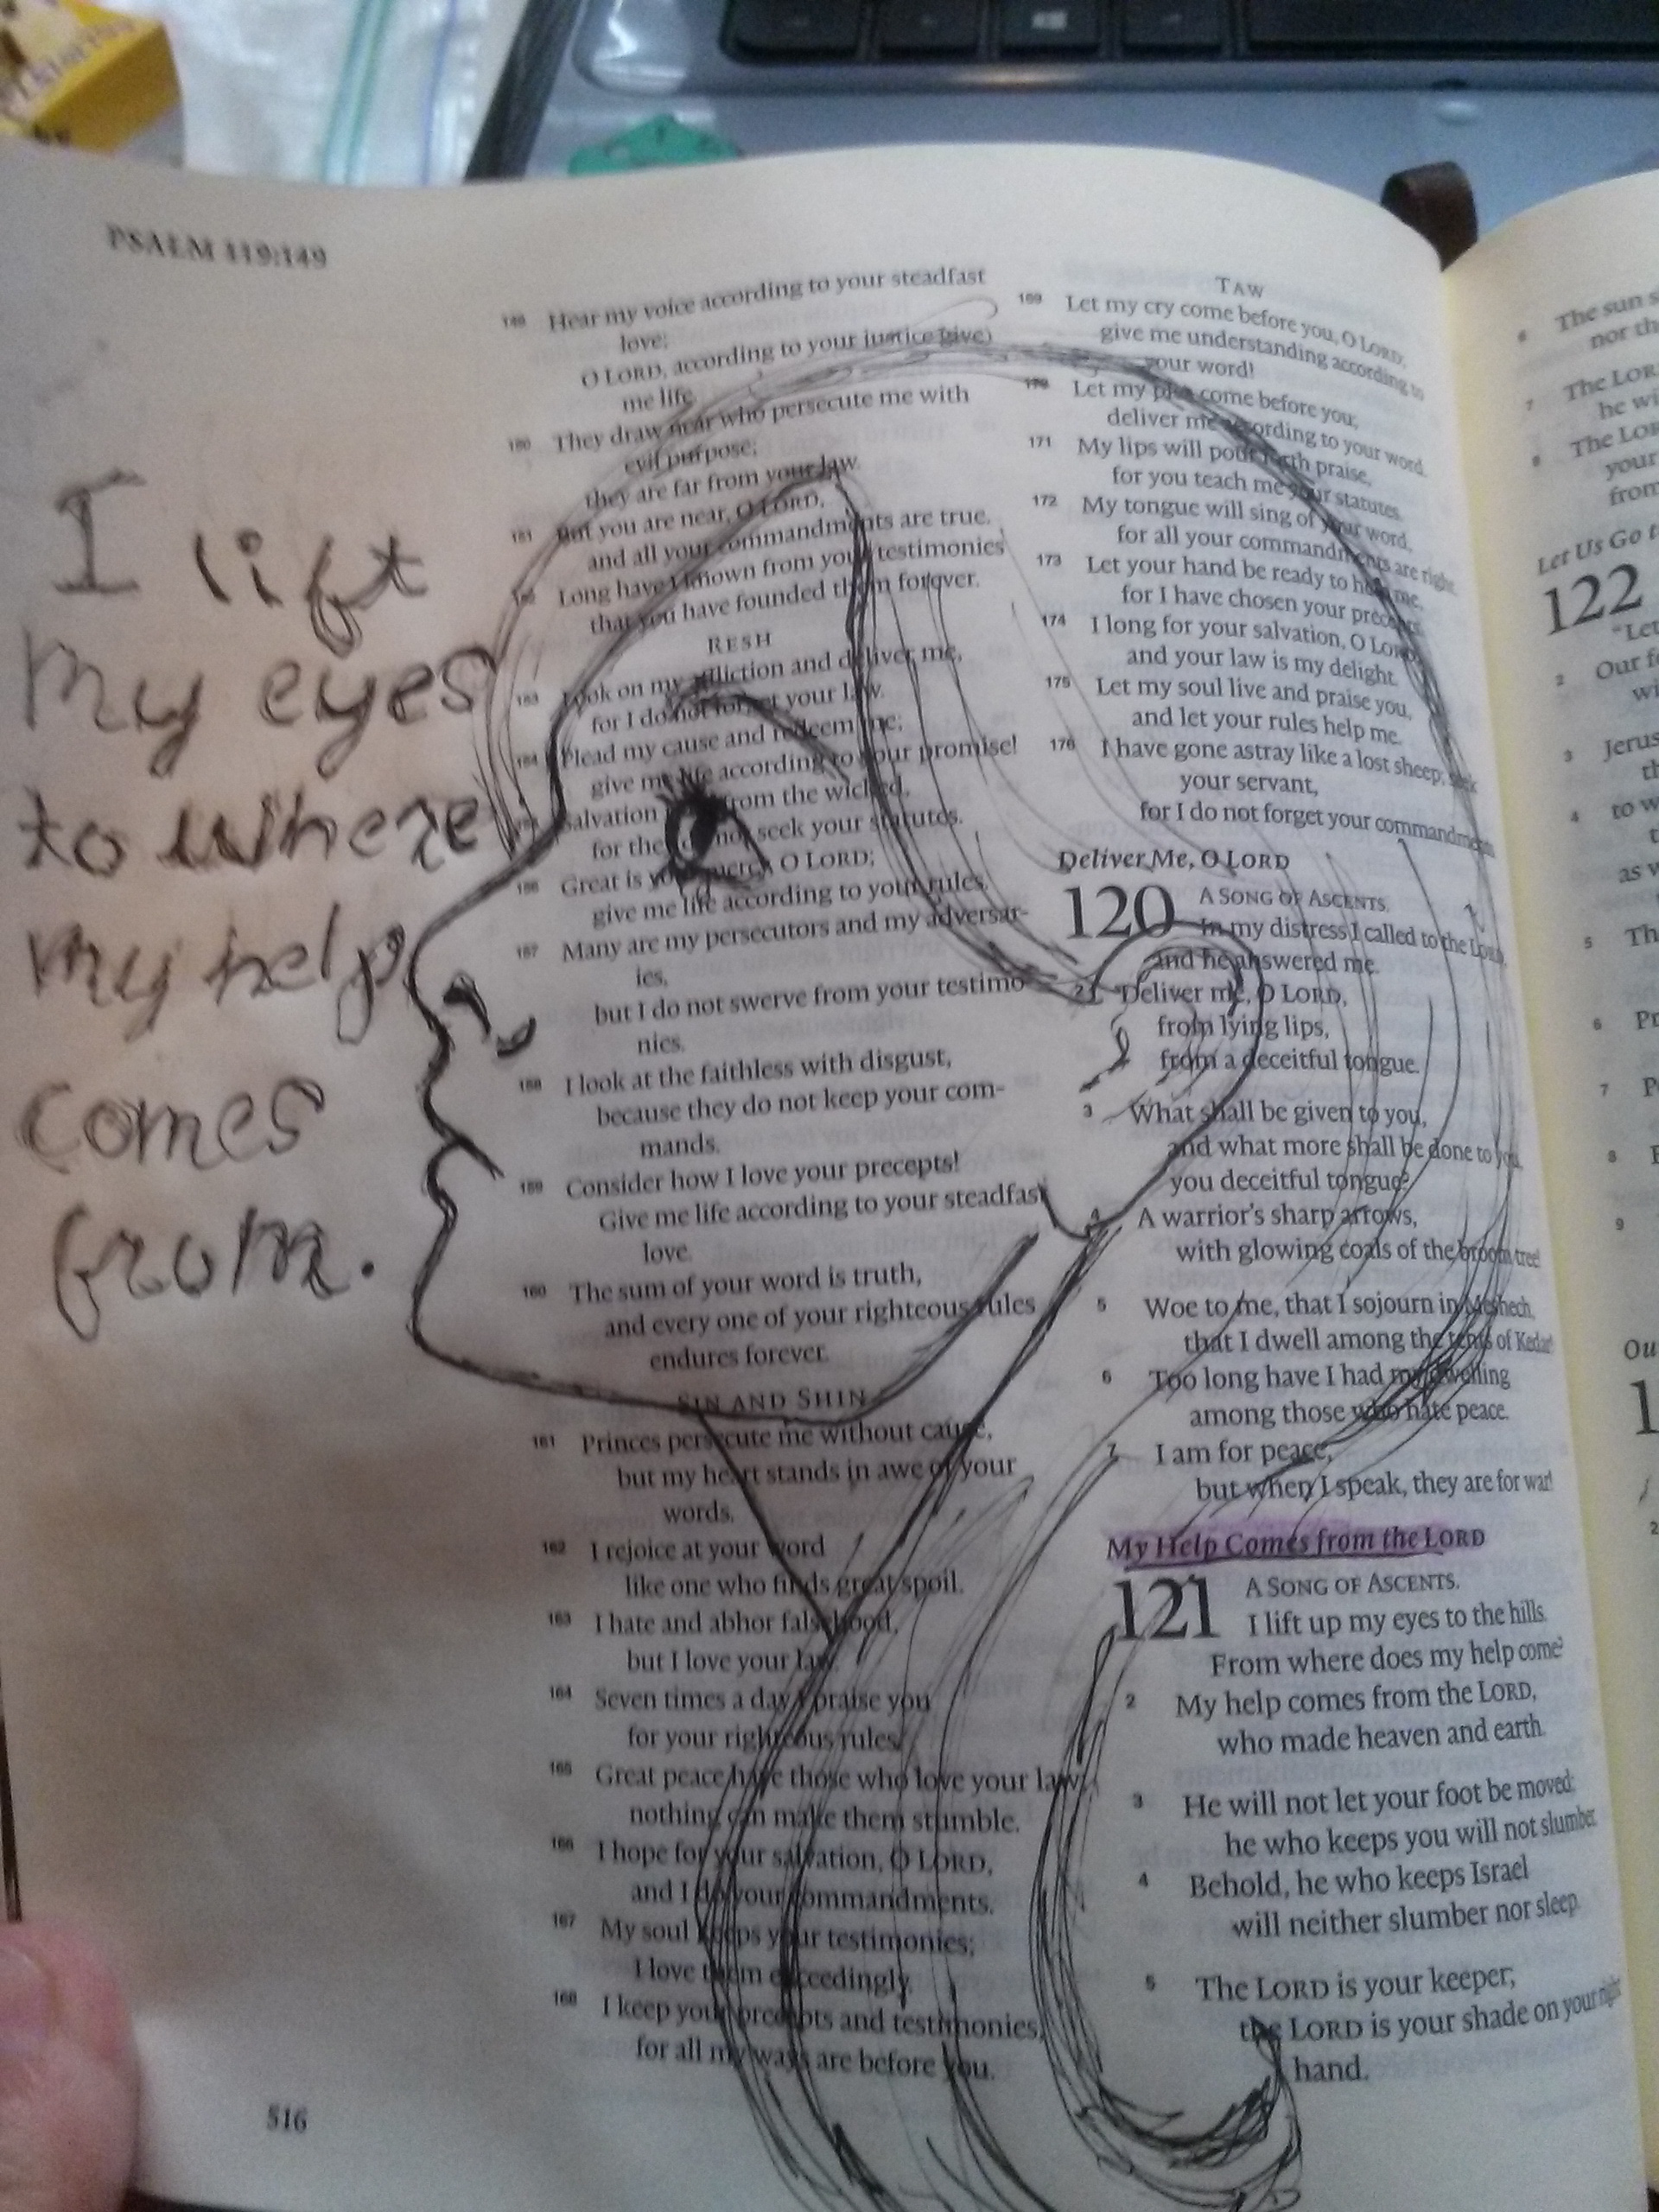 PSALM 119:149
I lift
my eyes
to where
my help
comes
from.
149 Hear my voice according to your steadfast
love;
O LORD, according to your justice give
me life.
150 They draw near who persecute me with
evil purpose;
they are far from your law.
151 But you are near, O LORD,
and all your commandments are true.
152 Long have I known from your testimonies
that you have founded them forever.
RESH
153 Look on my affliction and deliver me,
for I do not forget your law.
154 Plead my cause and redeem me;
give me life according to your promise!
155 Salvation is far from the wicked,
for they do not seek your statutes.
156 Great is your mercy, O LORD;
give me life according to your rules.
157 Many are my persecutors and my adversar-
ies,
but I do not swerve from your testimo-
nies.
158 I look at the faithless with disgust,
because they do not keep your com-
mands.
159 Consider how I love your precepts!
Give me life according to your steadfast
love.
160 The sum of your word is truth,
and every one of your righteous rules
endures forever.
SIN AND SHIN
161 Princes persecute me without cause,
but my heart stands in awe of your
words.
162 I rejoice at your word
like one who finds great spoil.
163 I hate and abhor falsehood,
but I love your law.
164 Seven times a day I praise you
for your righteous rules.
165 Great peace have those who love your law;
nothing can make them stumble.
166 I hope for your salvation, O LORD,
and I do your commandments.
167 My soul keeps your testimonies;
I love them exceedingly.
168 I keep your precepts and testimonies,
for all my ways are before you.
516
TAW
169 Let my cry come before you, O LORD;
give me understanding according to
your word!
170 Let my plea come before you;
deliver me according to your word.
171 My lips will pour forth praise,
for you teach me your statutes.
172 My tongue will sing of your word,
for all your commandments are right.
173 Let your hand be ready to help me,
for I have chosen your precepts.
174 I long for your salvation, O LORD,
and your law is my delight.
175 Let my soul live and praise you,
and let your rules help me.
176 I have gone astray like a lost sheep; seek
your servant,
for I do not forget your commandments.
Deliver Me, O LORD
120 A SONG OF ASCENTS.
In my distress I called to the LORD,
and he answered me.
2 Deliver me, O LORD,
from lying lips,
from a deceitful tongue.
3 What shall be given to you,
and what more shall be done to you,
you deceitful tongue?
4 A warrior's sharp arrows,
with glowing coals of the broom tree!
5 Woe to me, that I sojourn in Meshech,
that I dwell among the tents of Kedar!
6 Too long have I had my dwelling
among those who hate peace.
7 I am for peace,
but when I speak, they are for war!
My Help Comes from the LORD
121 A SONG OF ASCENTS.
I lift up my eyes to the hills.
From where does my help come?
2 My help comes from the LORD,
who made heaven and earth.
3 He will not let your foot be moved;
he who keeps you will not slumber.
4 Behold, he who keeps Israel
will neither slumber nor sleep.
5 The LORD is your keeper;
the LORD is your shade on your right
hand.
6 The sun
nor
7 The LOR
he wi
8 The LOR
your
from
Let Us Go
122
"Let
2 Our
wi
3 Jerus
4 to
as
5 Th
6
7
8
9
Ou
1
2